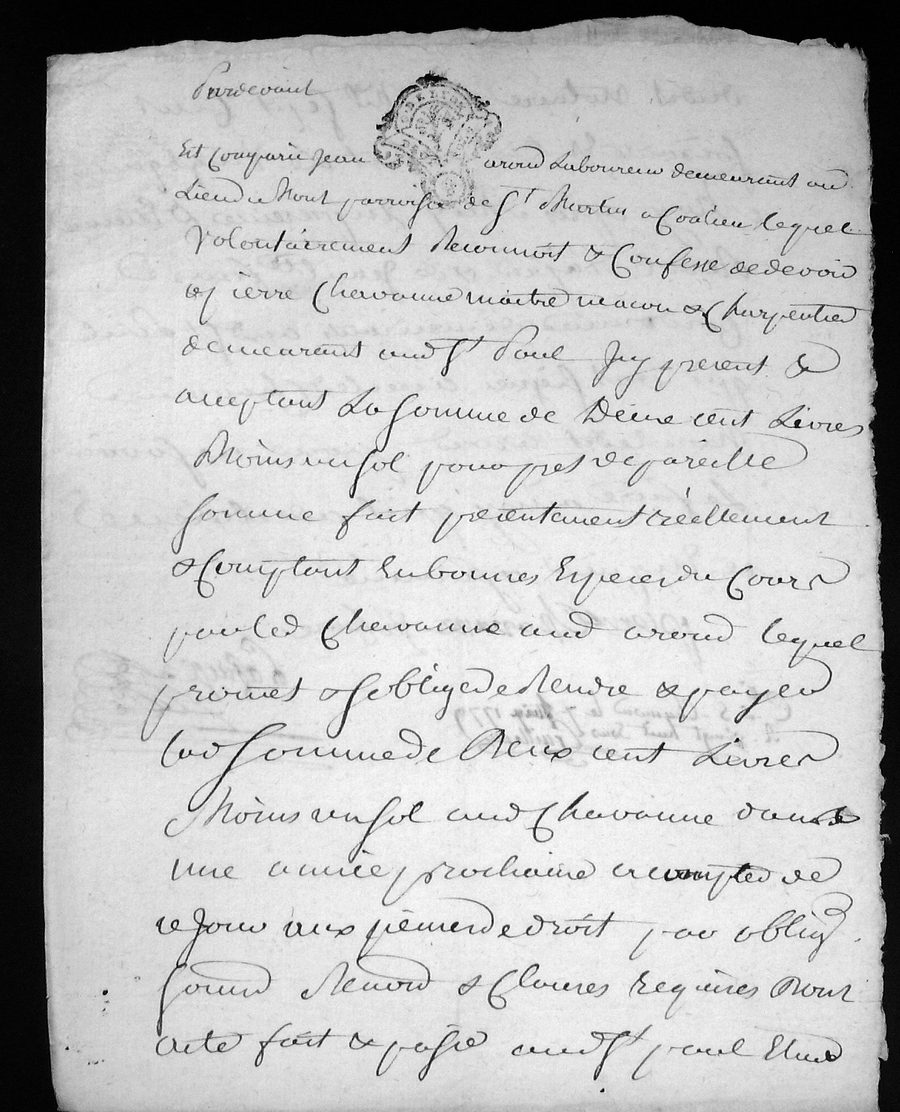 Pardevant
Est Comparu Jean arond Laboureur demeurant au
Lieu de Mont parroisse de St Martin a Coalieu lequel
Volontairement Reconnoit & Confesse de devoir
a pierre Chavanne maitre macon & Charpentier
demeurant aud St Paul Icy present &
acceptant La Somme de Deux cent Livres
Moins un Sol pour pret de pareille
Somme fait presentement reellement
& Comptant En bonnes Especes du Cours
par led Chavanne aud arond lequel
promet & Soblige de Rendre & payer
lad Somme de Deux cent Livres
Moins un Sol aud Chavanne dans
une année prochaine a compter de
ce Jour aux peines de droit par oblig
Soumd Renond & Clauses requises Dont
acte fait & passé aud St paul Etude